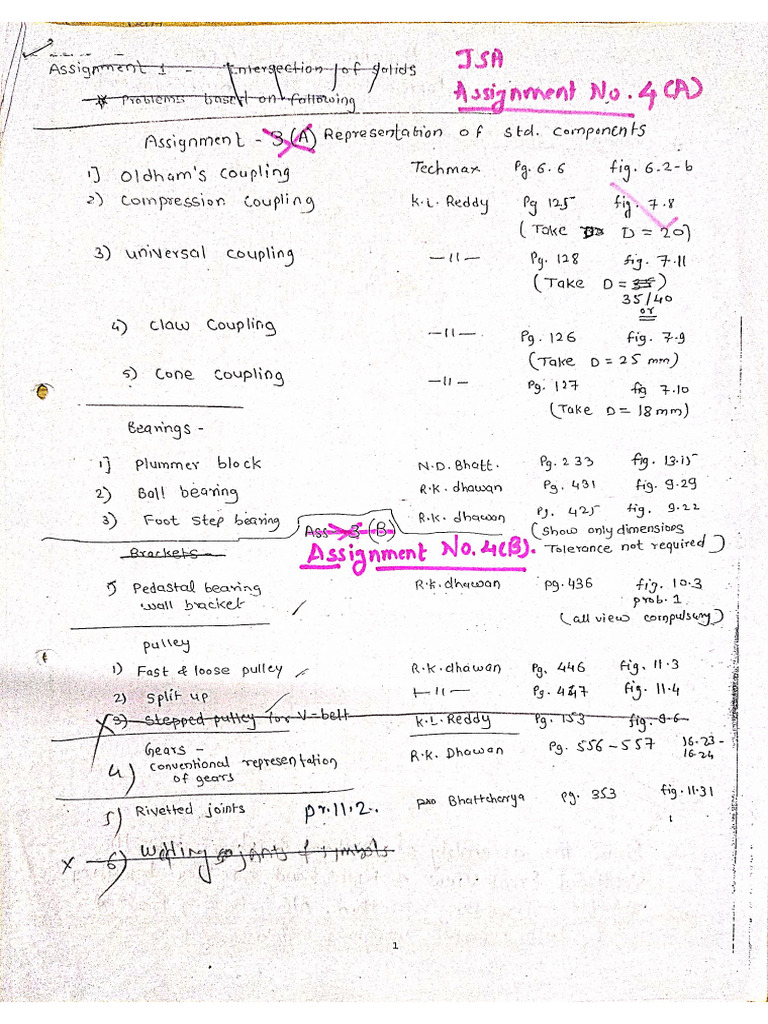 Assignment 1 - Intersection of solids
* Problems based on following
JSA
Assignment No. 4(A)
Assignment - 3(A) Representation of std. components
1] Oldham's coupling Techmax Pg. 6.6 fig. 6.2-b
2) Compression coupling K.L. Reddy Pg 125 fig. 7.8
(Take D = 20)
3) universal coupling —11— Pg. 128 fig. 7.11
(Take D = 35)
35/40
or
4) claw coupling —11— Pg. 126 fig. 7.9
(Take D = 25 mm)
5) cone coupling —11— Pg. 127 fig 7.10
(Take D = 18mm)
Bearings -
1] plummer block N.D. Bhatt. Pg. 233 fig. 13.15
2) Ball bearing R.K. dhawan Pg. 431 fig. 9.29
3) Foot step bearing R.K. dhawan Pg. 425 fig. 9.22
Ass 3 (B) (Show only dimensions
Brackets - Assignment No. 4(B). Tolerance not required)
1) Pedastal bearing R.K. dhawan pg. 436 fig. 10.3
wall bracket prob. 1
(all view compulsury)
pulley
1) Fast & loose pulley R.K. dhawan Pg. 446 fig. 11.3
2) Split up —11— Pg. 447 fig. 11.4
3) Stepped pulley for V-belt K.L. Reddy Pg. 153 fig. 9.6
Gears -
4) conventional representation R.K. Dhawan Pg. 556-557 16.23-
of gears 16.24
5) Rivetted joints Pr. 11.2. pro Bhattcharya pg. 353 fig. 11.31
x 6) joints & symbols
1